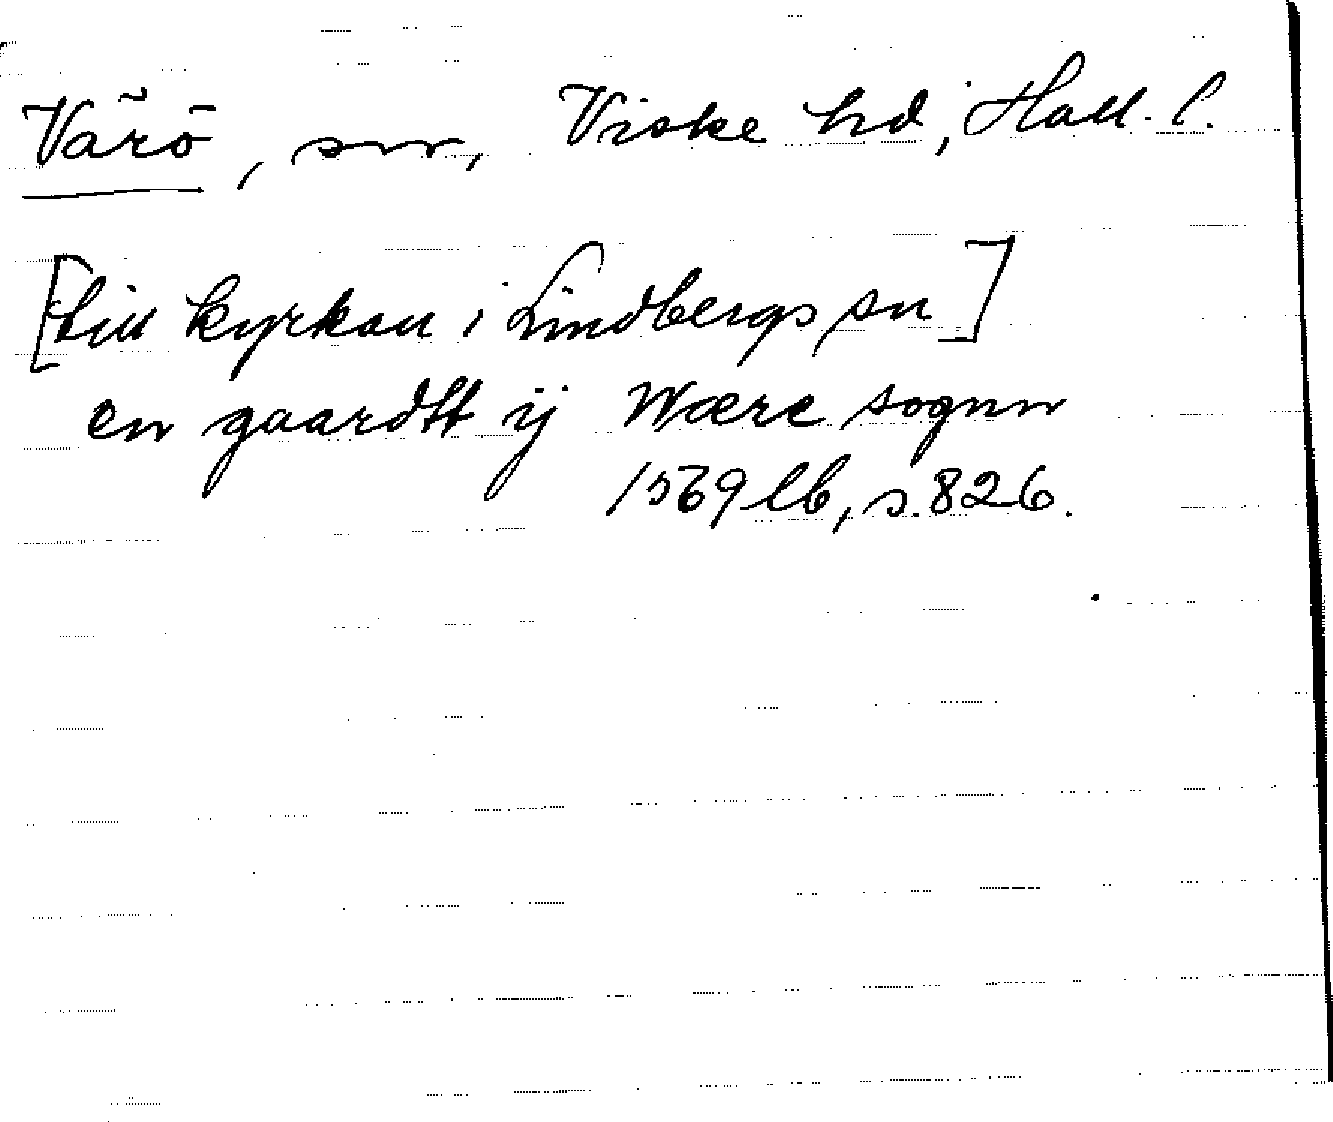 Värö, sn, Viske hd, Hall. l.
[till kyrkan i Lindbergs sn]
en gaardtt ij Wære sognn
1569 lb, s. 826.